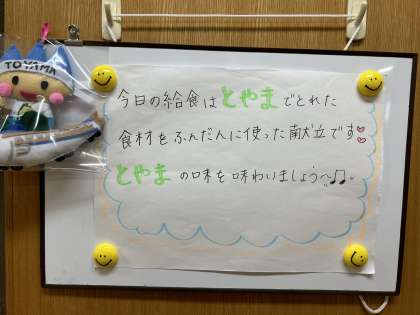 TOYAMA
今日の給食はとやまでとれた
食材をふんだんに使った献立です♡♡
とやまの味を味わいましょう〜♫♪